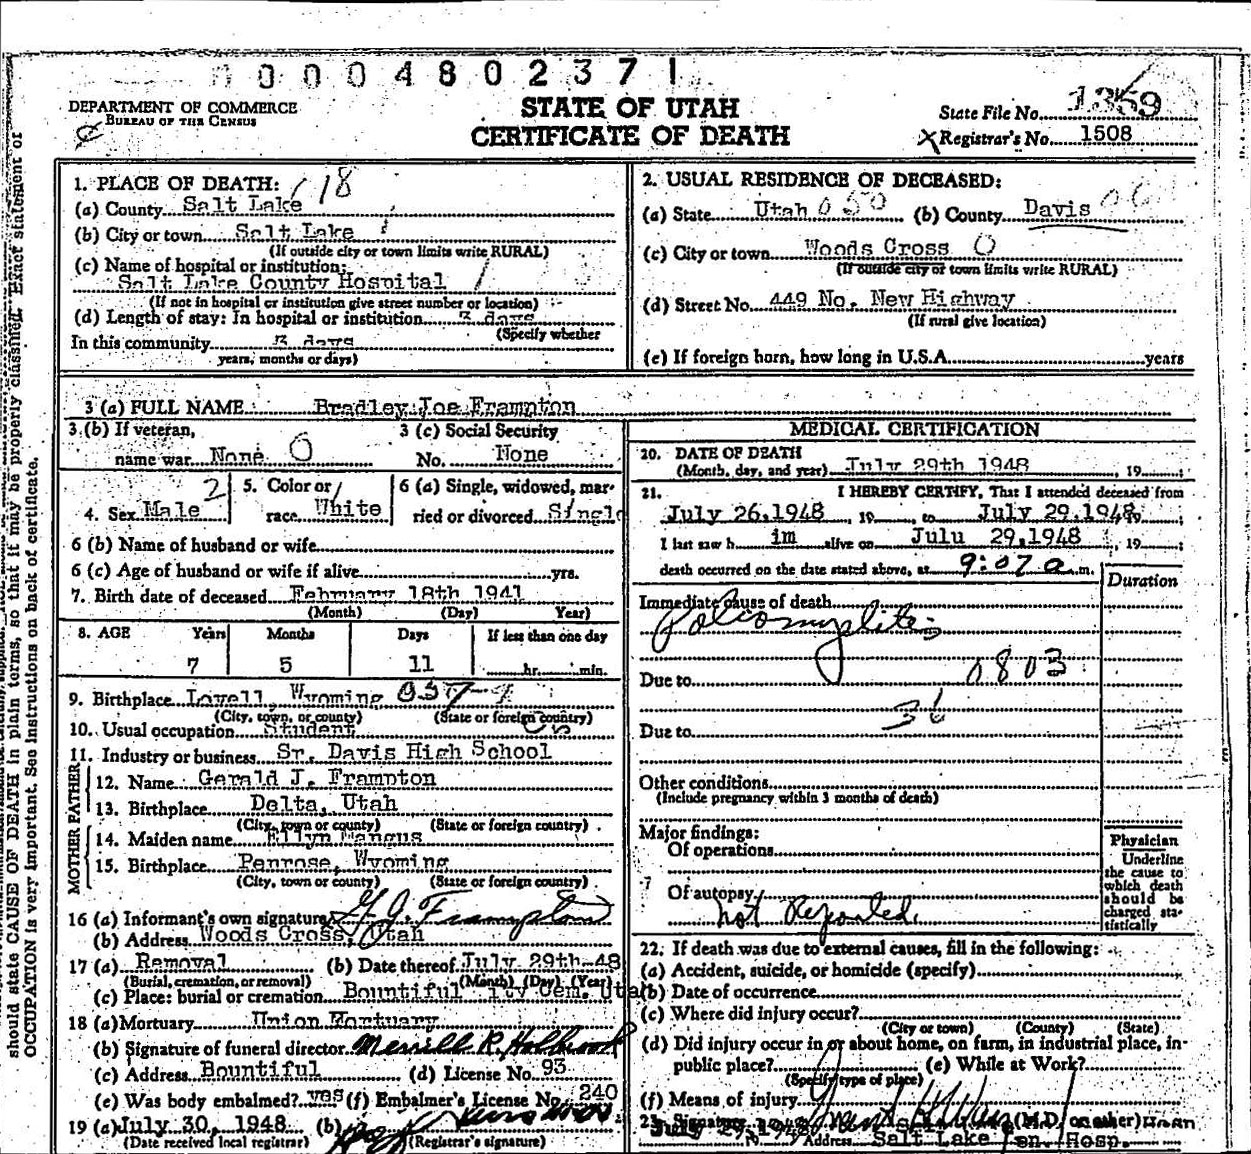 0004802371
DEPARTMENT OF COMMERCE
BUREAU OF THE CENSUS
STATE OF UTAH
CERTIFICATE OF DEATH
State File No.
Registrar's No. 1508
1. PLACE OF DEATH: 118
(a) County Salt Lake
(b) City or town Salt Lake
(If outside city or town limits write RURAL)
(c) Name of hospital or institution:
Salt Lake County Hospital
(If not in hospital or institution give street number or location)
(d) Length of stay: In hospital or institution 3 days
(Specify whether
In this community 3 days
years, months or days)
2. USUAL RESIDENCE OF DECEASED:
(a) State Utah 050 (b) County Davis 06
(c) City or town Woods Cross 0
(If outside city or town limits write RURAL)
(d) Street No. 449 No. New Highway
(If rural give location)
(e) If foreign born, how long in U.S.A. years
3 (a) FULL NAME Bradley Joe Frampton
3 (b) If veteran,
name war None 0
3 (c) Social Security
No. None
4. Sex Male 2
5. Color or
race White
6 (a) Single, widowed, mar-
ried or divorced Singl
6 (b) Name of husband or wife
6 (c) Age of husband or wife if alive yrs.
7. Birth date of deceased February 18th 1941
(Month) (Day) Year)
8. AGE Years Months Days If less than one day
7 5 11 hr. min.
9. Birthplace Lovell, Wyoming
(City, town, or county) (State or foreign country)
10. Usual occupation Student
11. Industry or business Sr. Davis High School
FATHER
12. Name Gerald J. Frampton
13. Birthplace Delta, Utah
(City, town or county) (State or foreign country)
MOTHER
14. Maiden name Ellyn Mangus
15. Birthplace Penrose, Wyoming
(City, town or county) (State or foreign country)
16 (a) Informant's own signature G. J. Frampton
(b) Address Woods Cross, Utah
17 (a) Removal (b) Date thereof July 29th-48
(Burial, cremation, or removal) (Month) (Day) (Year)
(c) Place: burial or cremation Bountiful ity Cem. Uta
18 (a) Mortuary Union Mortuary
(b) Signature of funeral director Merrill R. Holbrook
(c) Address Bountiful (d) License No. 93
(e) Was body embalmed? yes (f) Embalmer's License No. 240
19 (a) July 30, 1948 (b)
(Date received local registrar) (Registrar's signature)
MEDICAL CERTIFICATION
20. DATE OF DEATH
(Month, day, and year) July 29th 1948, 19
21. I HEREBY CERTIFY, That I attended deceased from
July 26,1948, 19 to July 29,1948
I last saw h im alive on Julu 29,1948, 19
death occurred on the date stated above, at 9:07 a m.
Duration
Immediate cause of death
Poliomyelitis
Due to 0803
36
Due to
Other conditions
(Include pregnancy within 3 months of death)
Major findings:
Of operations
Of autopsy
not Reported.
Physician
Underline
the cause to
which death
should be
charged sta-
tistically
22. If death was due to external causes, fill in the following:
(a) Accident, suicide, or homicide (specify)
(b) Date of occurrence
(c) Where did injury occur?
(City or town) (County) (State)
(d) Did injury occur in or about home, on farm, in industrial place, in-
public place? (e) While at Work?
(Specify type of place)
(f) Means of injury
23. Signature (M.D. or other)
July 29,1948 Address Salt Lake en. Hosp.
should state CAUSE OF DEATH in plain terms, so that it may be properly classified. Exact statement of
OCCUPATION is very important. See instructions on back of certificate.